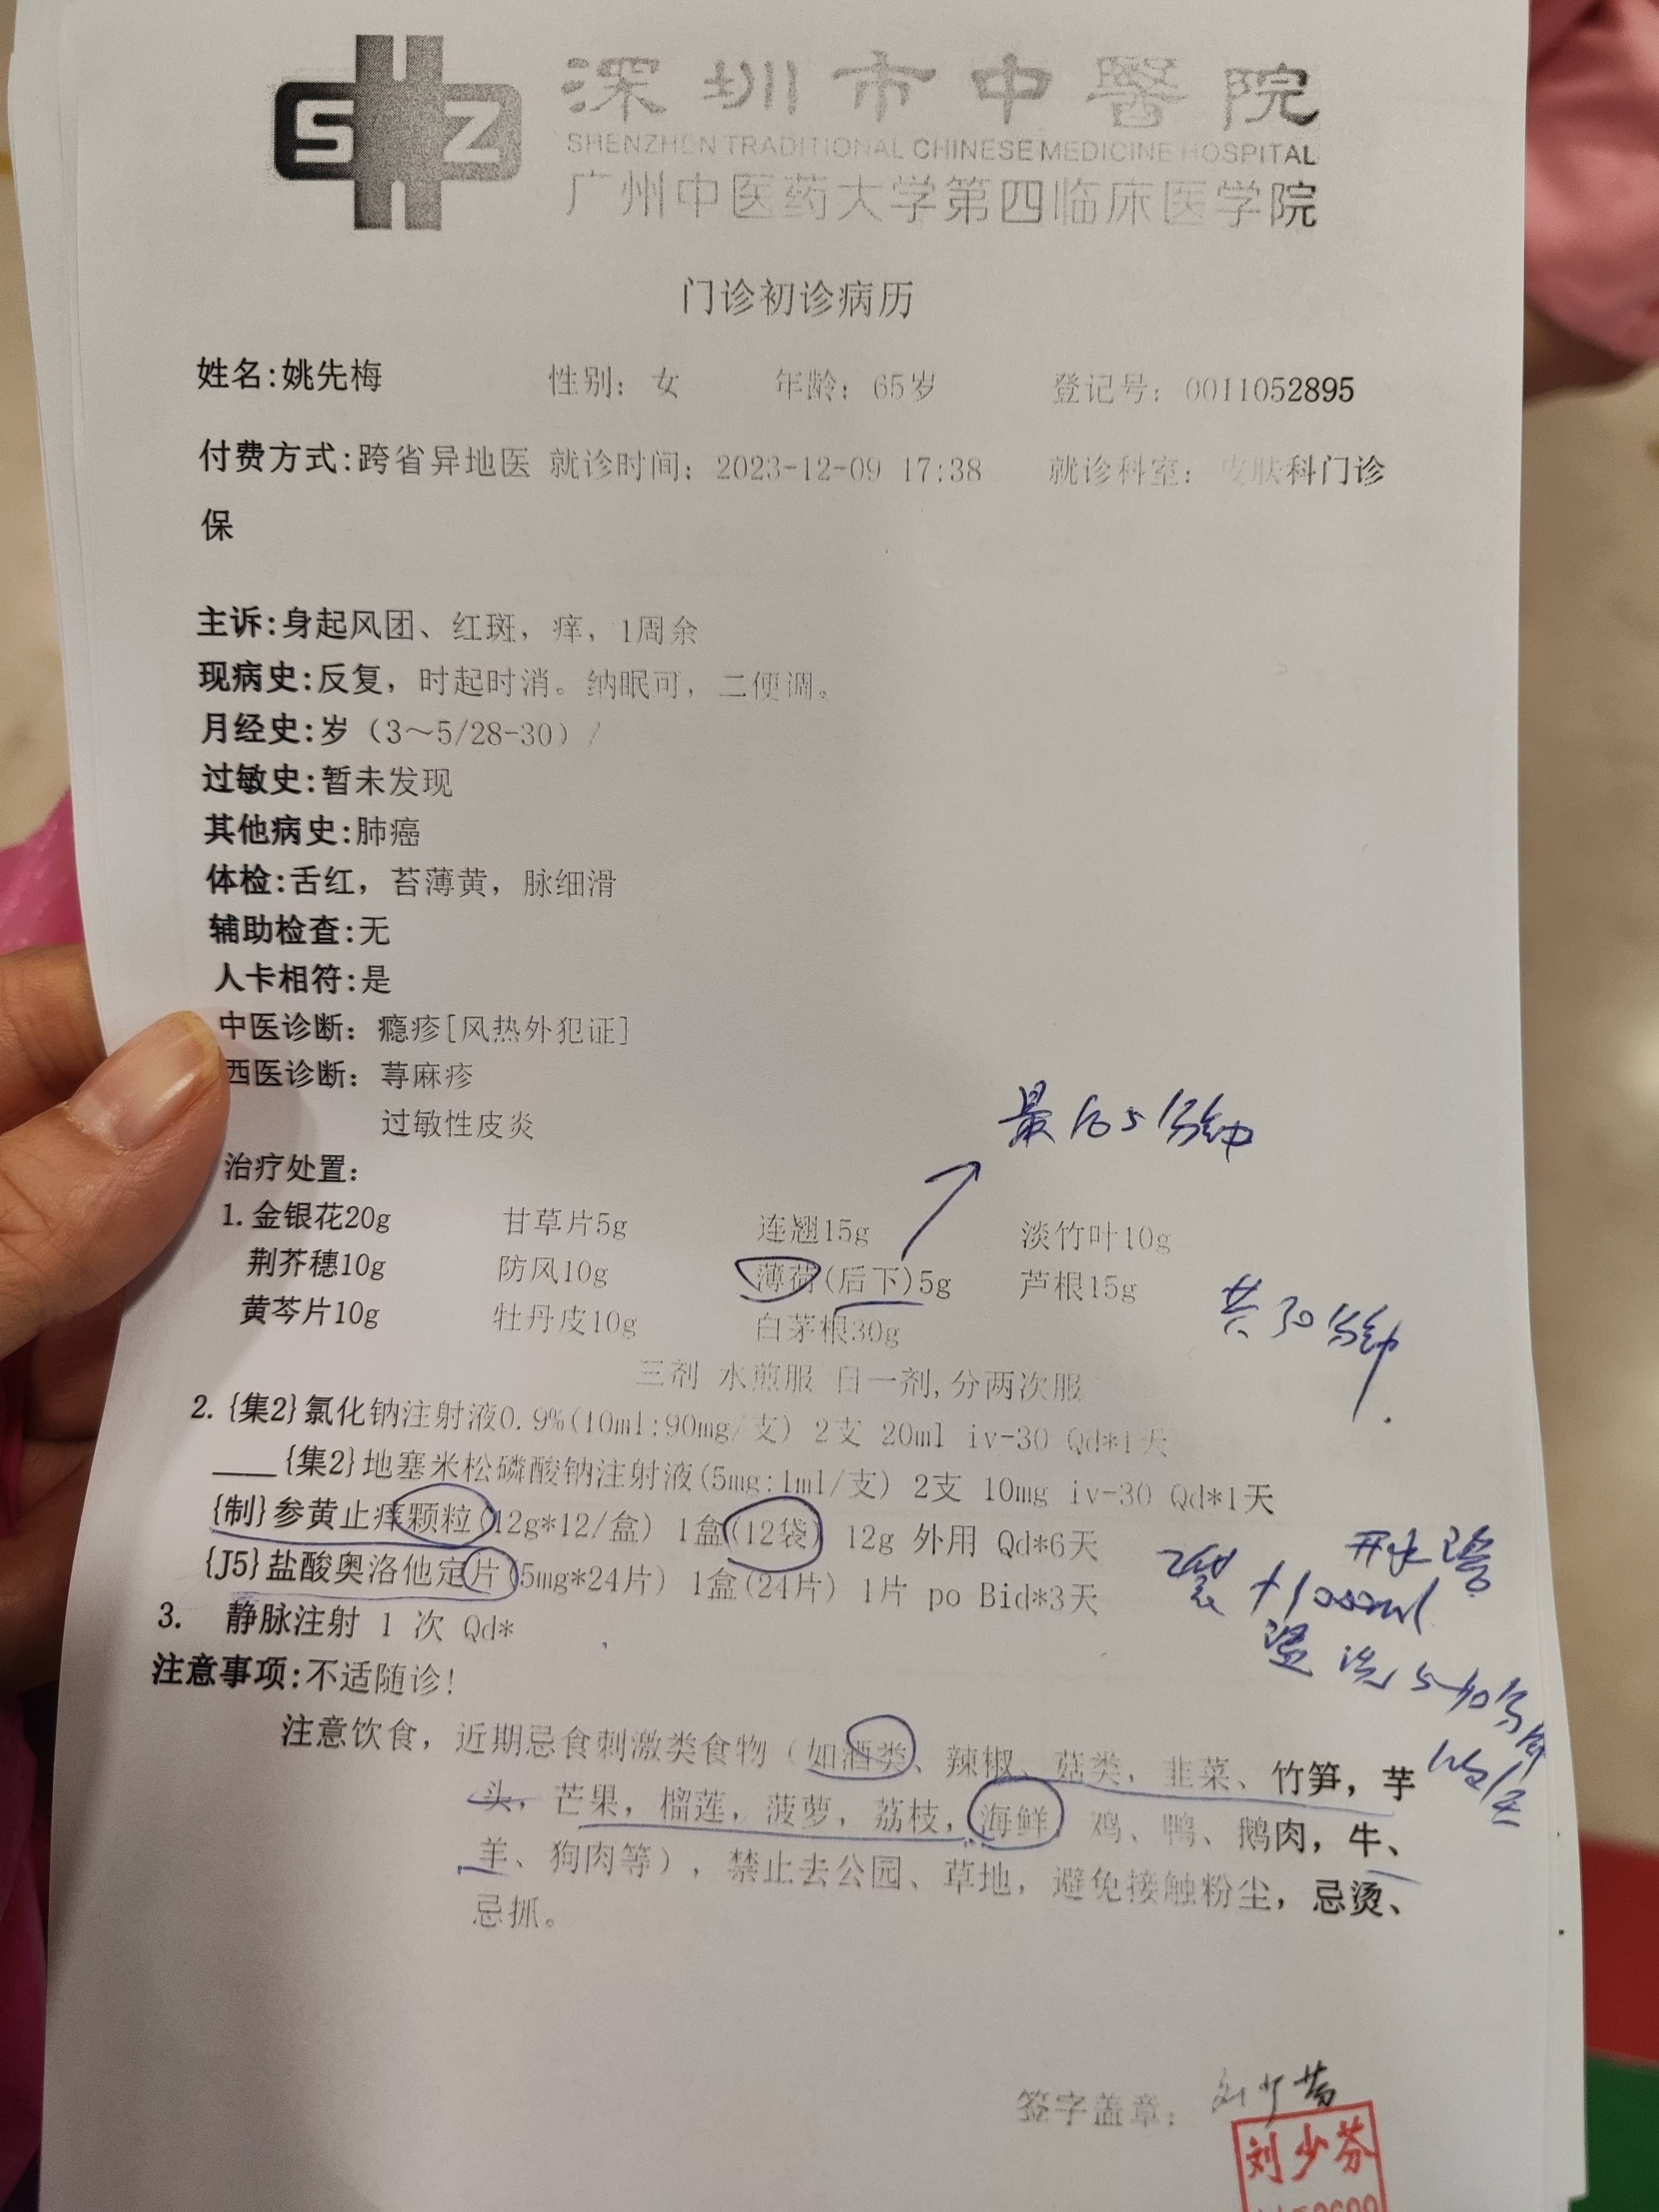 SZ
深圳市中醫院
SHENZHEN TRADITIONAL CHINESE MEDICINE HOSPITAL
广州中医药大学第四临床医学院
门诊初诊病历
姓名:姚先梅 性别: 女 年龄: 65岁 登记号: 0011052895
付费方式:跨省异地医 就诊时间: 2023-12-09 17:38 就诊科室: 皮肤科门诊
保
主诉:身起风团、红斑, 痒, 1周余
现病史:反复, 时起时消。纳眠可, 二便调。
月经史:岁 (3~5/28-30) /
过敏史:暂未发现
其他病史:肺癌
体检:舌红, 苔薄黄, 脉细滑
辅助检查:无
人卡相符:是
中医诊断: 瘾疹[风热外犯证]
西医诊断: 荨麻疹
过敏性皮炎
最后5分钟
治疗处置:
1. 金银花20g 甘草片5g 连翘15g 淡竹叶10g
荆芥穗10g 防风10g 薄荷(后下)5g 芦根15g
黄芩片10g 牡丹皮10g 白茅根30g
共30分钟
三剂 水煎服 日一剂,分两次服
2. {集2}氯化钠注射液0.9%(10ml:90mg/支) 2支 20ml iv-30 Qd*1天
____{集2}地塞米松磷酸钠注射液(5mg:1ml/支) 2支 10mg iv-30 Qd*1天
{制}参黄止痒颗粒(12g*12/盒) 1盒(12袋) 12g 外用 Qd*6天
{J5}盐酸奥洛他定片(5mg*24片) 1盒(24片) 1片 po Bid*3天
开水溶
2袋+1000ml
湿洗5-10分钟
3. 静脉注射 1 次 Qd*
注意事项:不适随诊!
注意饮食, 近期忌食刺激类食物 (如酒类、辣椒、菇类, 韭菜、竹笋, 芋
头, 芒果, 榴莲, 菠萝, 荔枝, 海鲜, 鸡、鸭、鹅肉, 牛、
羊、狗肉等), 禁止去公园、草地, 避免接触粉尘, 忌烫、
忌抓。
签字盖章: 刘少芬
刘少芬